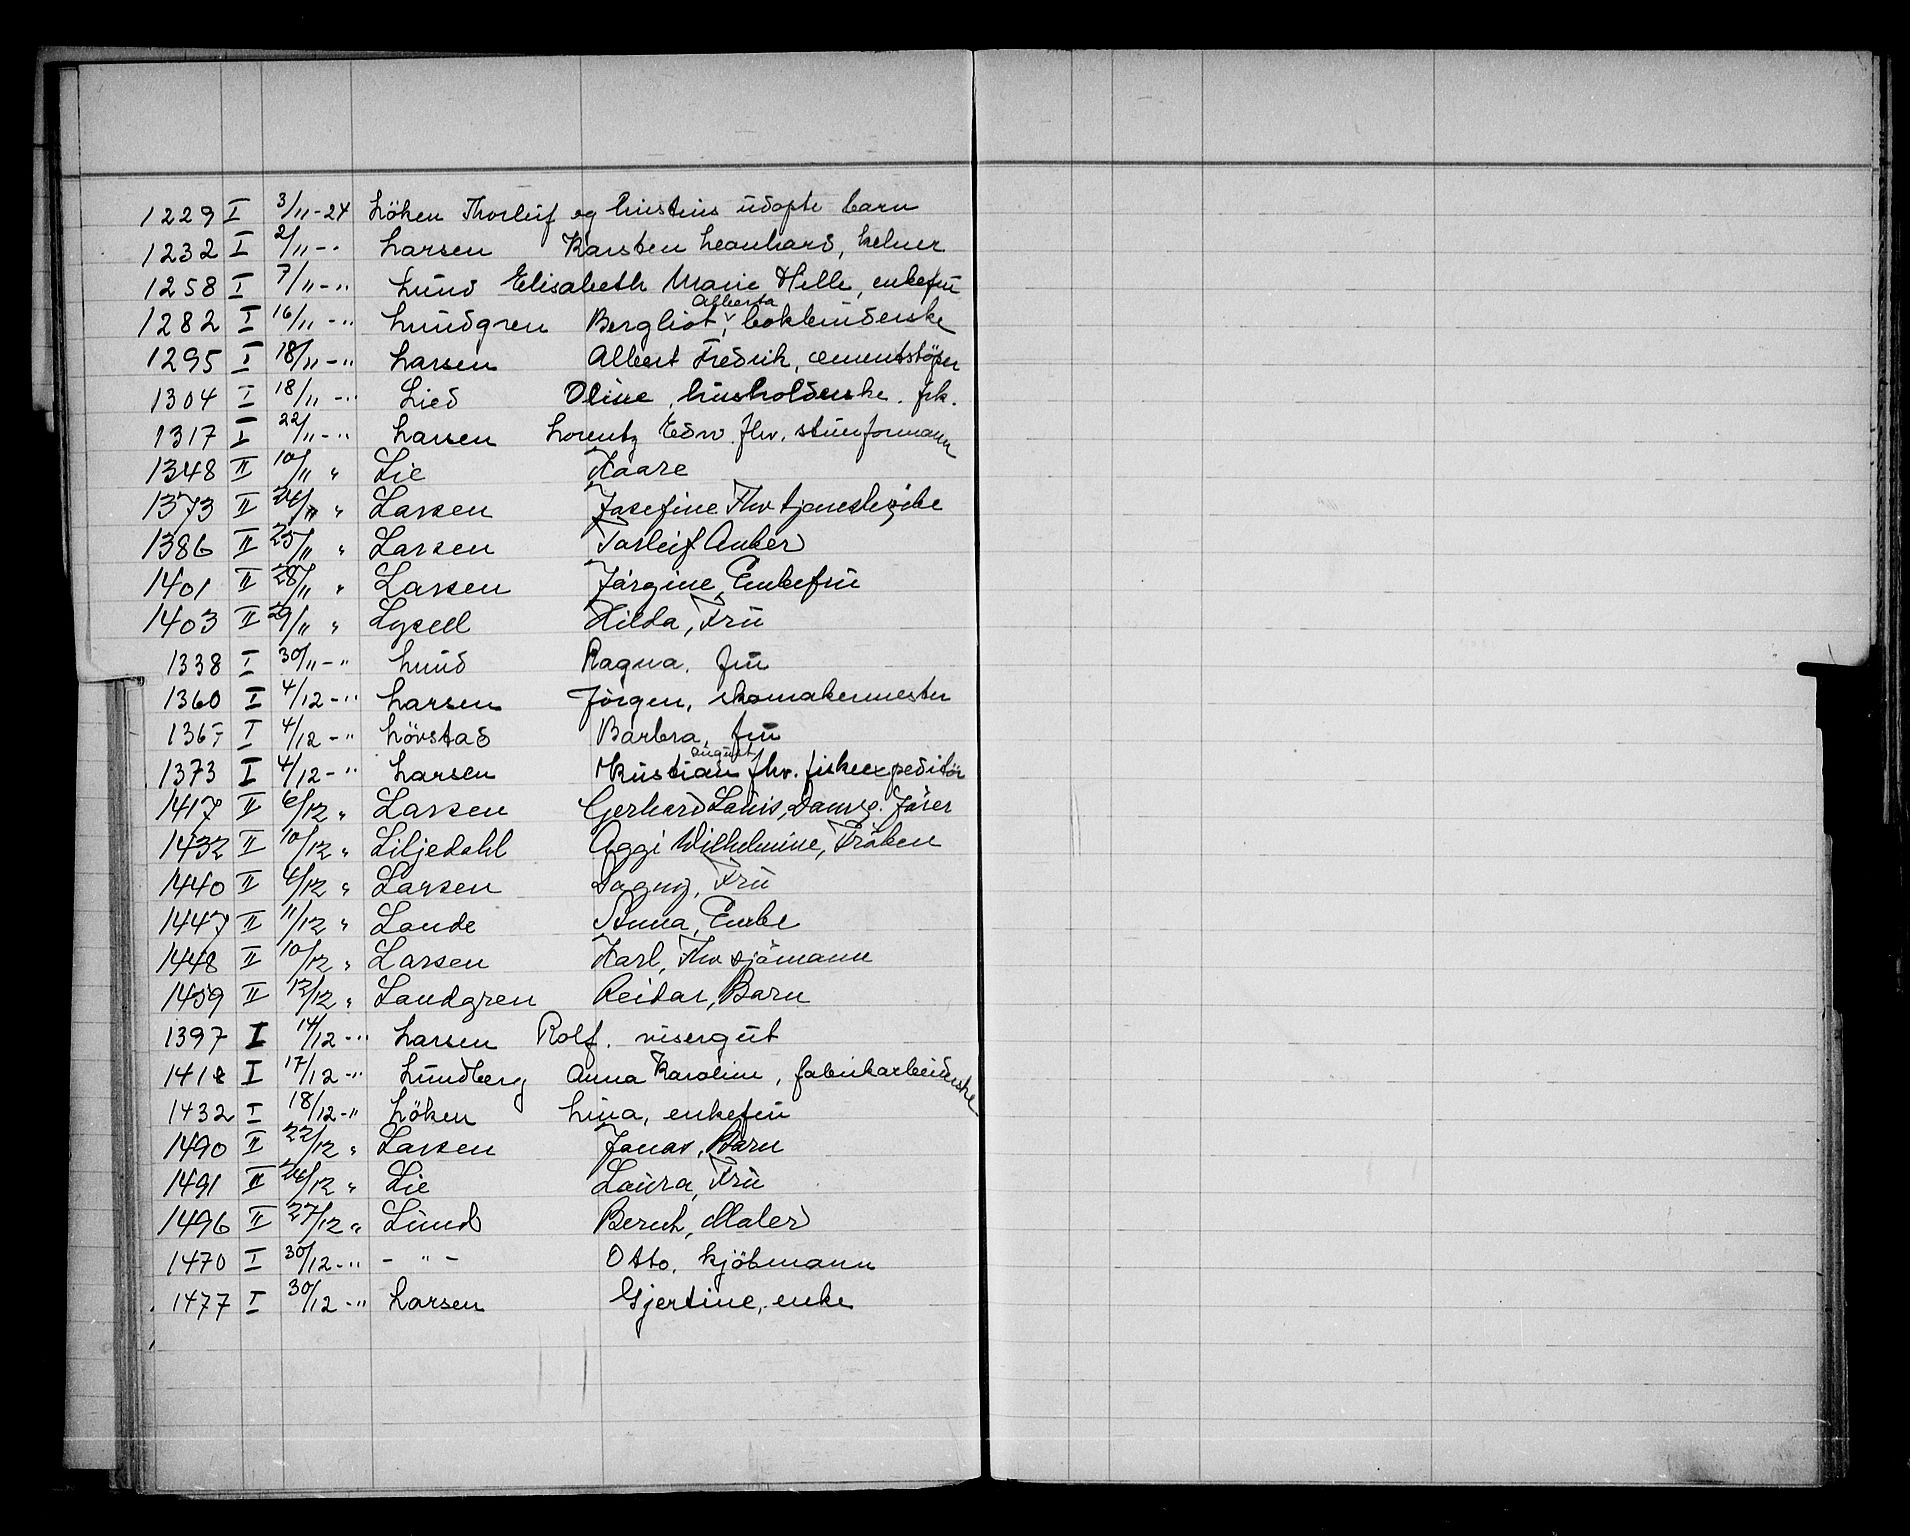 1229 I 3/11-24 Löken Thorleif og Kristins udøpte barn
1232 I 2/11-" Larsen Karsten Leonhard, kelner
1258 I 7/11-" Lund Elisabeth Marie Helle, enkefru
1282 I 16/11-" Lundgren Bergliot Alberta, bokbinderske
1295 I 18/11-" Larsen Albert Fredrik, cementstöper
1304 I 18/11-" Lied Oline, husholderske. frk.
1317 I 22/11-" Larsen Lorentz Edv. fhv. stuerformann
1348 II 10/11 " Lie Kaare
1373 II 24/11 " Larsen Josefine Fhv tjenestepike
1386 II 25/11 " Larsen Torleif Anker
1401 II 28/11 " Larsen Jörgine, Enkefru
1403 II 29/11 " Lysell Hilda, Fru
1338 I 30/11-" Lund Ragna, fru
1360 I 4/12-" Larsen Jörgen, skomakermester
1365 I 4/12-" Lövstad Barbra, fru
1373 I 4/12-" Larsen Kristian august fhv. fiskeexpeditör
1417 II 6/12 " Larsen Gerhard Louis, Damsg. Förer
1432 II 10/12 " Liljedahl Aggi Wilhelmine, Fröken
1440 II 6/12 " Larsen Dagny, Fru
1447 II 11/12 " Lande Anna, Enke
1448 II 10/12 " Larsen Karl, Fhv sjömann
1459 II 12/12 " Landgren Reidar, Barn
1397 I 14/12-" Larsen Rolf. visergut
1418 I 17/12-" Lundberg Anna Karoline, fabrikarbeiderske
1432 I 18/12-" Löken Lina, enkefru
1490 II 22/12 " Larsen Jonas, Barn
1491 II 26/12 " Lie Laura, Fru
1496 II 27/12 " Lund Bernt, Maler
1470 I 30/12-" - " - Otto, kjöbmann
1477 I 30/12-" Larsen Gjertine, enke